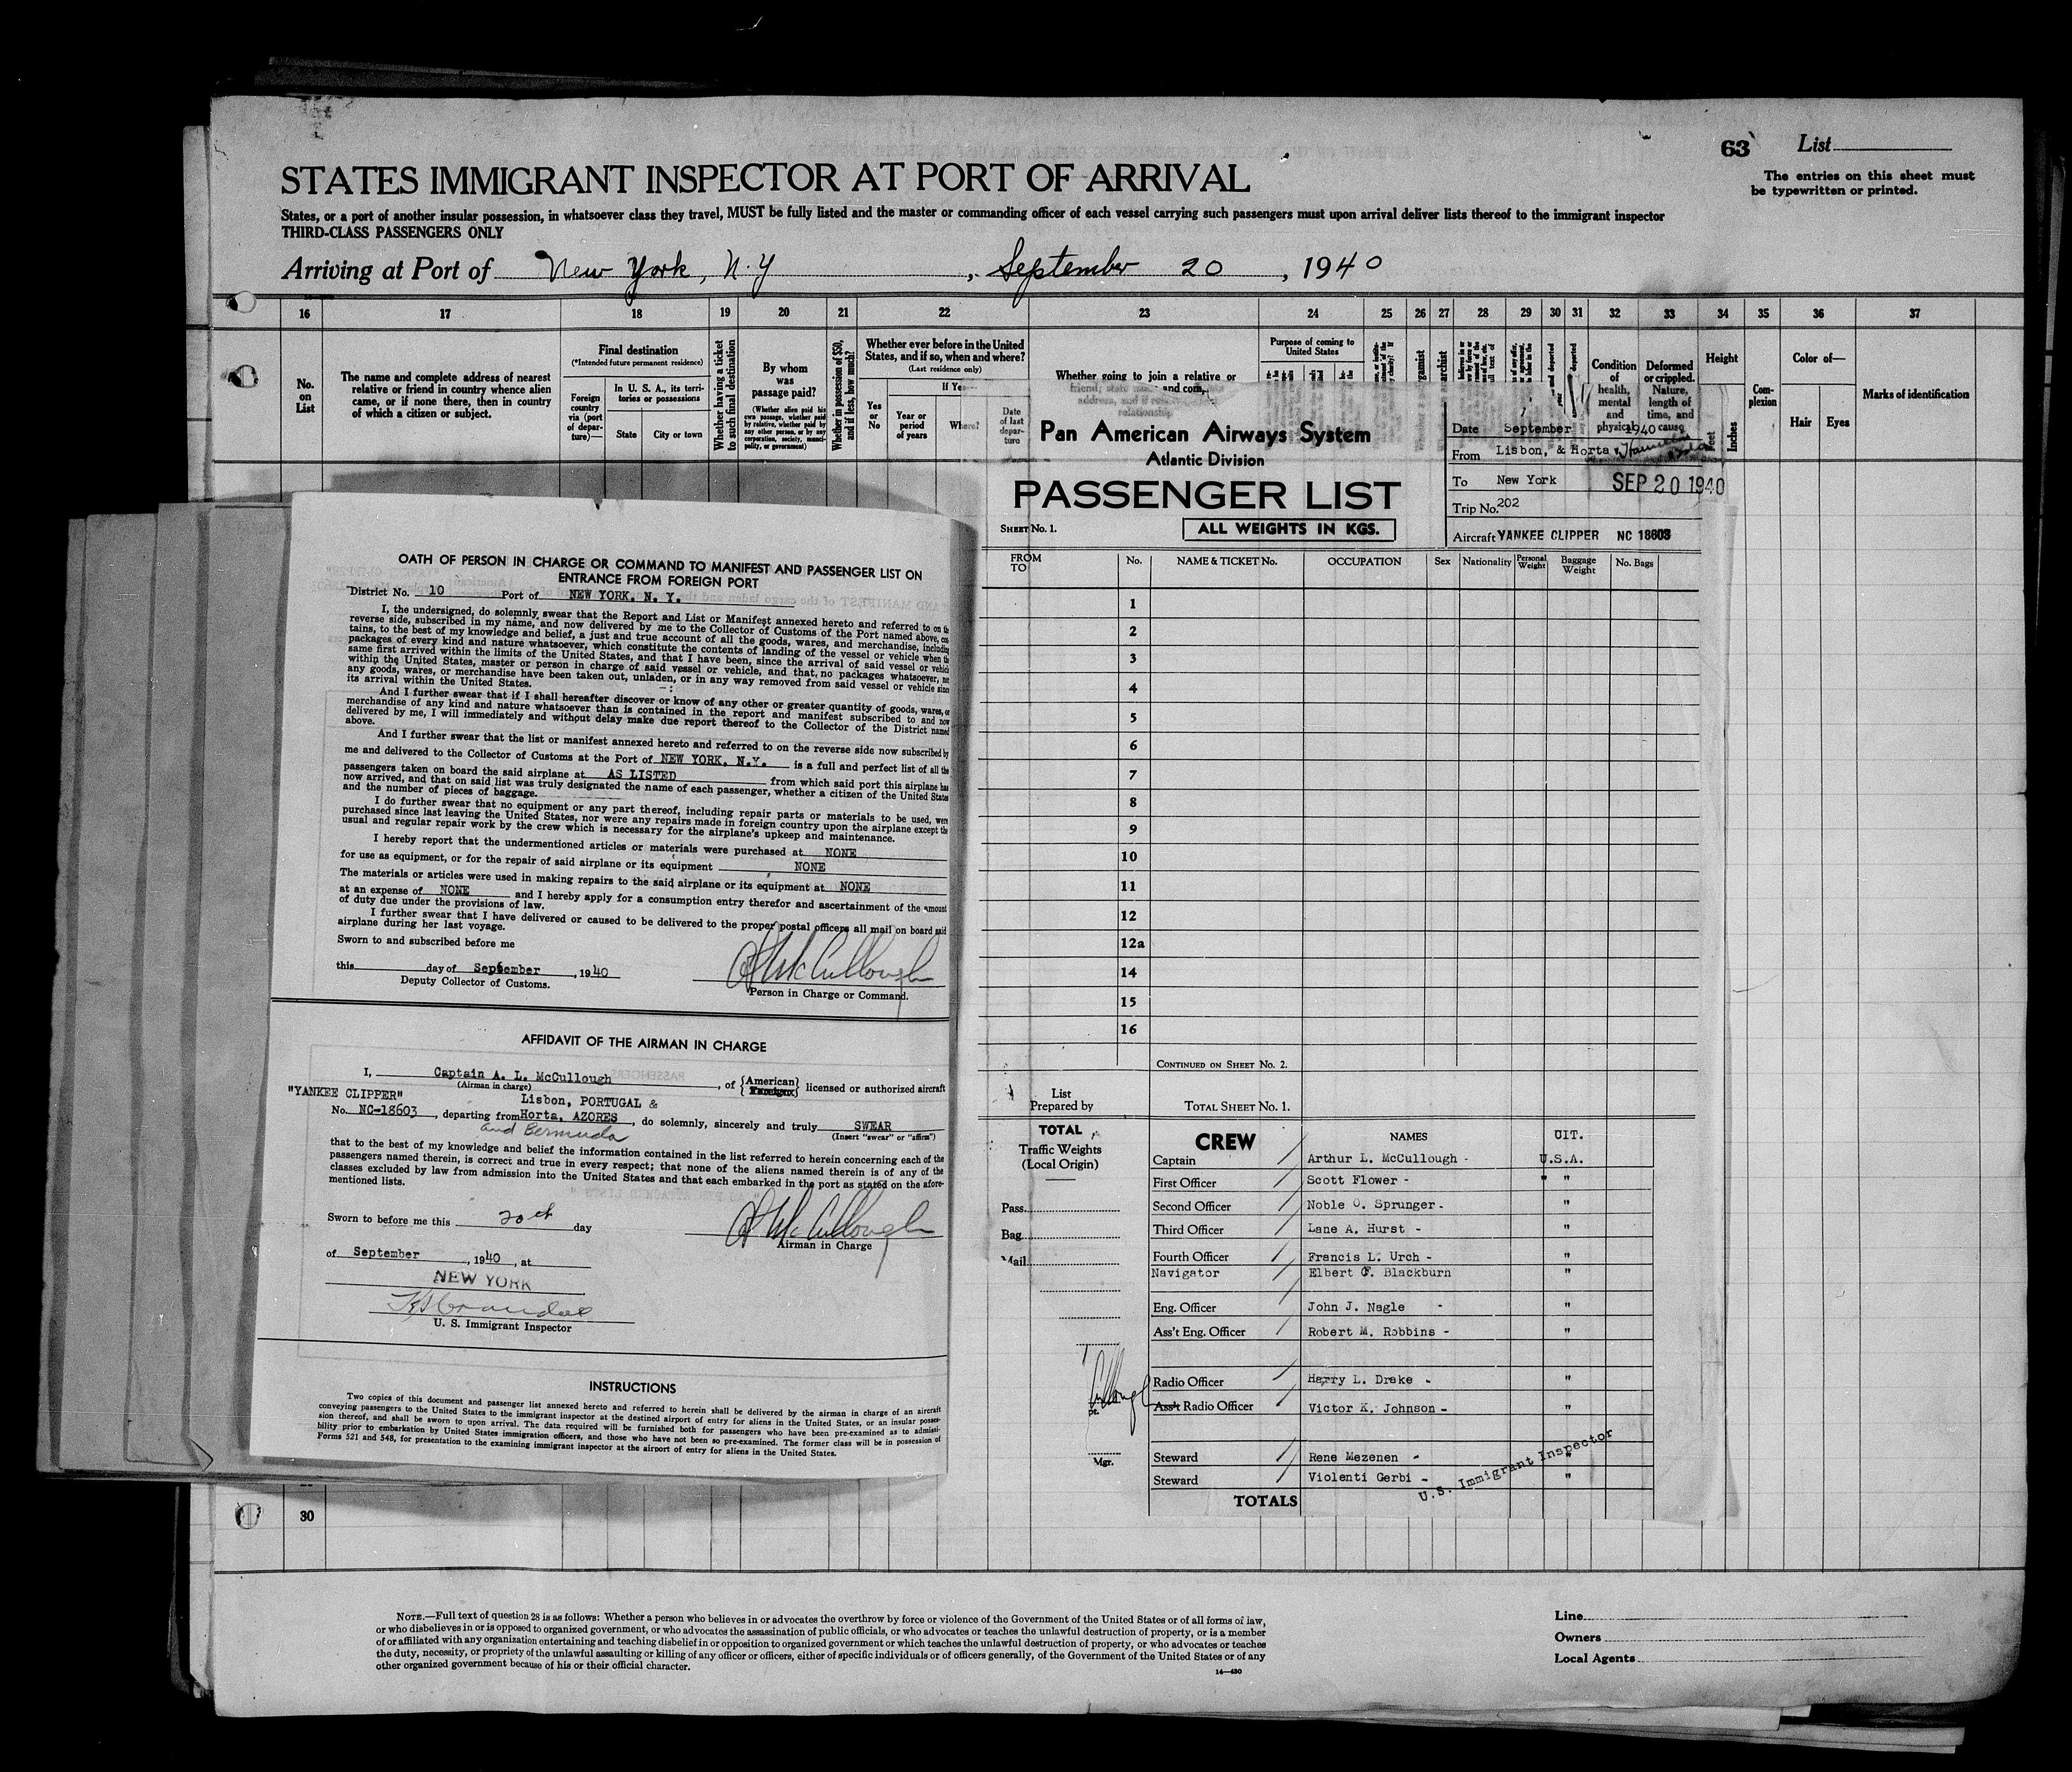 63 List
The entries on this sheet must
be typewritten or printed.
STATES IMMIGRANT INSPECTOR AT PORT OF ARRIVAL
States, or a port of another insular possession, in whatsoever class they travel, MUST be fully listed and the master or commanding officer of each vessel carrying such passengers must upon arrival deliver lists thereof to the immigrant inspector
THIRD-CLASS PASSENGERS ONLY
Arriving at Port of New York, N.Y , September 20 , 1940
16 17 18 19 20 21 22 23 24 25 26 27 28 29 30 31 32 33 34 35 36 37
No. on List
The name and complete address of nearest
relative or friend in country whence alien
came, or if none there, then in country
of which a citizen or subject.
Final destination
(*Intended future permanent residence)
Foreign country via (port of departure)—
In U. S. A., its territories or possessions
State City or town
Whether having a ticket to such final destination
By whom was passage paid?
(Whether alien paid his own passage, whether paid by relative, whether paid by any other person, or by any corporation, society, municipality, or government)
Whether in possession of $50, and if less, how much?
Whether ever before in the United
States, and if so, when and where?
(Last residence only)
Yes or No
If Yes—
Year or period of years
Where?
Date of last departure
Whether going to join a relative or
friend; state name and com
address, and if
relationship
Purpose of coming to
United States
Condition of health, mental and physical
Deformed or crippled. Nature, length of time, and cause
Height
Feet Inches
Complexion
Color of—
Hair Eyes
Marks of identification
Pan American Airways System
Atlantic Division
PASSENGER LIST
SHEET No. 1.
ALL WEIGHTS IN KGS.
Date September 1940
From Lisbon, & Horta
To New York SEP 20 1940
Trip No. 202
Aircraft YANKEE CLIPPER NC 18603
FROM TO No. NAME & TICKET No. OCCUPATION Sex Nationality Personal Weight Baggage Weight No. Bags
1
2
3
4
5
6
7
8
9
10
11
12
12a
14
15
16
CONTINUED ON SHEET No. 2.
List
Prepared by TOTAL SHEET No. 1.
TOTAL
Traffic Weights
(Local Origin)
Pass.
Bag.
Mail
Mgr.
CREW NAMES CIT.
Captain Arthur L. McCullough - U.S.A.
First Officer Scott Flower - " "
Second Officer Noble O. Sprunger - "
Third Officer Lane A. Hurst - "
Fourth Officer Francis L. Urch - "
Navigator Elbert F. Blackburn "
Eng. Officer John J. Nagle - "
Ass't Eng. Officer Robert M. Robbins - "
Radio Officer Harry L. Drake - "
Ass't Radio Officer Victor K. Johnson - "
Steward Rene Mezenen - "
Steward Violenti Gerbi - "
U.S. Immigrant Inspector
TOTALS
OATH OF PERSON IN CHARGE OR COMMAND TO MANIFEST AND PASSENGER LIST ON
ENTRANCE FROM FOREIGN PORT
District No. 10 Port of NEW YORK, N. Y.
I, the undersigned, do solemnly swear that the Report and List or Manifest annexed hereto and referred to on the
reverse side, subscribed in my name, and now delivered by me to the Collector of Customs of the Port named above, con-
tains, to the best of my knowledge and belief, a just and true account of all the goods, wares, and merchandise, including
packages of every kind and nature whatsoever, which constitute the contents of landing of the vessel or vehicle when the
same first arrived within the limits of the United States, and that I have been, since the arrival of said vessel or vehicle
within the United States, master or person in charge of said vessel or vehicle, and that, no packages whatsoever, nor
any goods, wares, or merchandise have been taken out, unladen, or in any way removed from said vessel or vehicle since
its arrival within the United States.
And I further swear that if I shall hereafter discover or know of any other or greater quantity of goods, wares, or
merchandise of any kind and nature whatsoever than is contained in the report and manifest subscribed to and now
delivered by me, I will immediately and without delay make due report thereof to the Collector of the District named
above.
And I further swear that the list or manifest annexed hereto and referred to on the reverse side now subscribed by
me and delivered to the Collector of Customs at the Port of NEW YORK, N.Y. is a full and perfect list of all the
passengers taken on board the said airplane at AS LISTED from which said port this airplane has
now arrived, and that on said list was truly designated the name of each passenger, whether a citizen of the United States
and the number of pieces of baggage.
I do further swear that no equipment or any part thereof, including repair parts or materials to be used, were
purchased since last leaving the United States, nor were any repairs made in foreign country upon the airplane except the
usual and regular repair work by the crew which is necessary for the airplane's upkeep and maintenance.
I hereby report that the undermentioned articles or materials were purchased at NONE
for use as equipment, or for the repair of said airplane or its equipment NONE
The materials or articles were used in making repairs to the said airplane or its equipment at NONE
at an expense of NONE and I hereby apply for a consumption entry therefor and ascertainment of the amount
of duty due under the provisions of law.
I further swear that I have delivered or caused to be delivered to the proper postal officers all mail on board said
airplane during her last voyage.
Sworn to and subscribed before me
this day of September , 1940 A L McCullough
Deputy Collector of Customs. Person in Charge or Command.
AFFIDAVIT OF THE AIRMAN IN CHARGE
I, Captain A. L. McCullough , of {American} {Foreign} licensed or authorized aircraft
(Airman in charge)
"YANKEE CLIPPER" Lisbon, PORTUGAL &
No. NC-18603 , departing from Horta, AZORES , do solemnly, sincerely and truly SWEAR
and Bermuda (Insert "swear" or "affirm")
that to the best of my knowledge and belief the information contained in the list referred to herein concerning each of the
passengers named therein, is correct and true in every respect; that none of the aliens named therein is of any of the
classes excluded by law from admission into the United States and that each embarked in the port as stated on the afore-
mentioned lists.
Sworn to before me this 20th day A L McCullough
Airman in Charge
of September , 1940 , at
NEW YORK
U. S. Immigrant Inspector
INSTRUCTIONS
Two copies of this document and passenger list annexed hereto and referred to herein shall be delivered by the airman in charge of an aircraft
conveying passengers to the United States to the immigrant inspector at the destined airport of entry for aliens in the United States, or an insular posses-
sion thereof, and shall be sworn to upon arrival. The data required will be furnished both for passengers who have been pre-examined as to admissi-
bility prior to embarkation by United States immigration officers, and those who have not been so pre-examined. The former class will be in possession of
Forms 521 and 548, for presentation to the examining immigrant inspector at the airport of entry for aliens in the United States.
30
NOTE.—Full text of question 28 is as follows: Whether a person who believes in or advocates the overthrow by force or violence of the Government of the United States or of all forms of law,
or who disbelieves in or is opposed to organized government, or who advocates the assassination of public officials, or who advocates or teaches the unlawful destruction of property, or is a member
of or affiliated with any organization entertaining and teaching disbelief in or opposition to organized government or which teaches the unlawful destruction of property, or who advocates or teaches
the duty, necessity, or propriety of the unlawful assaulting or killing of any officer or officers, either of specific individuals or of officers generally, of the Government of the United States or of any
other organized government because of his or their official character.
16—430
Line
Owners
Local Agents